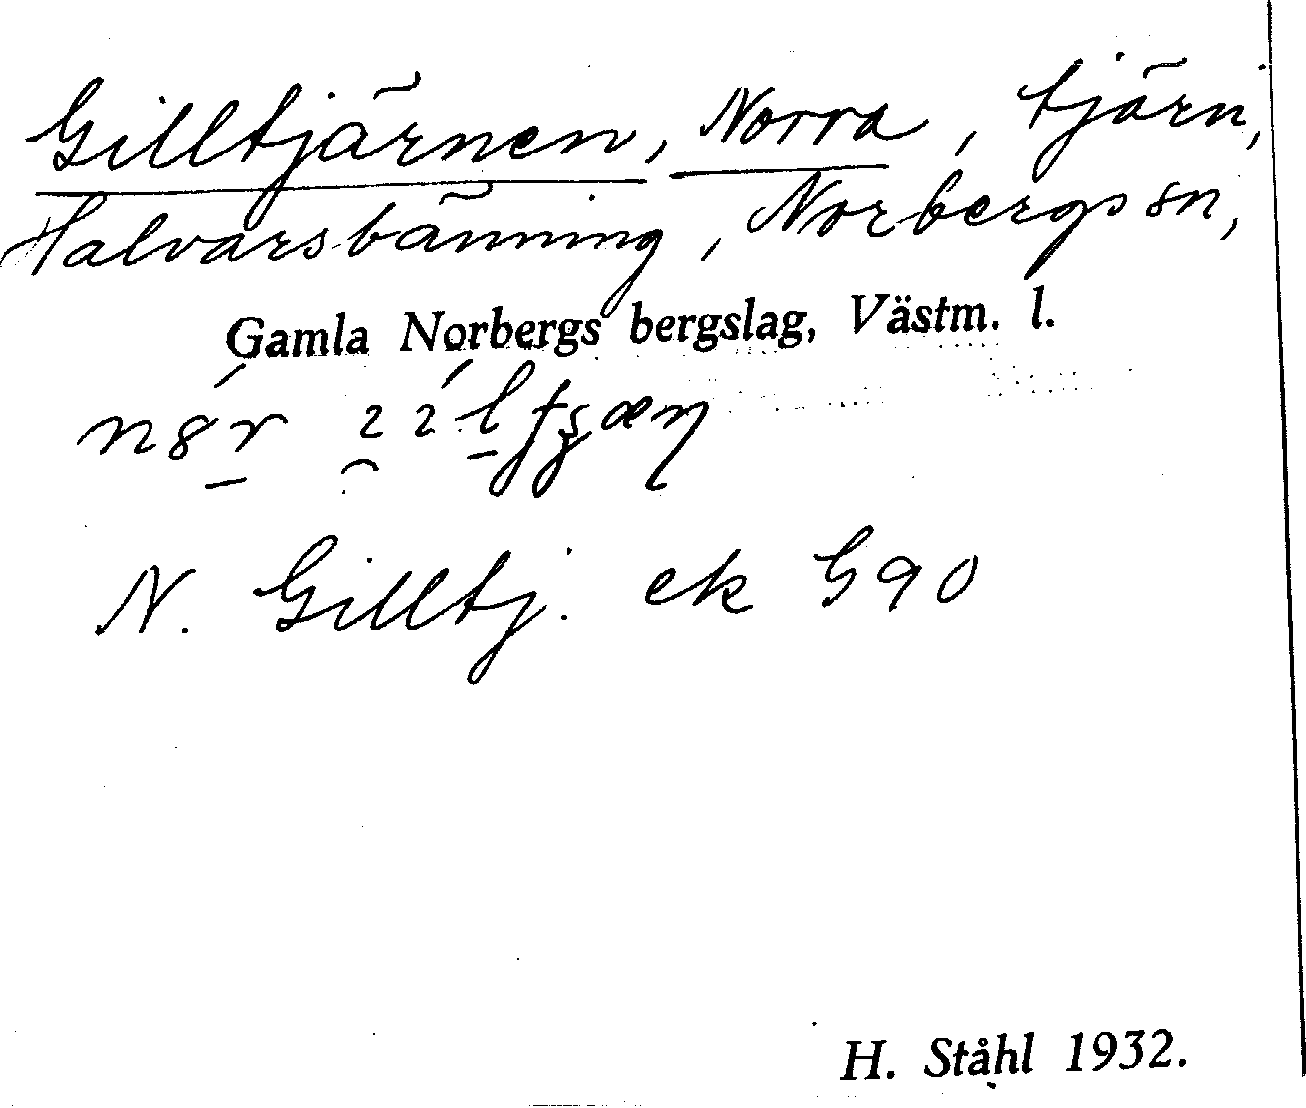 Gilltjärnen, Norra, tjärn,
Halvarsbänning, Norbergs sn,
Gamla Norbergs bergslag, Västm. l.
N. Gilltj. ek G90
H. Ståhl 1932.